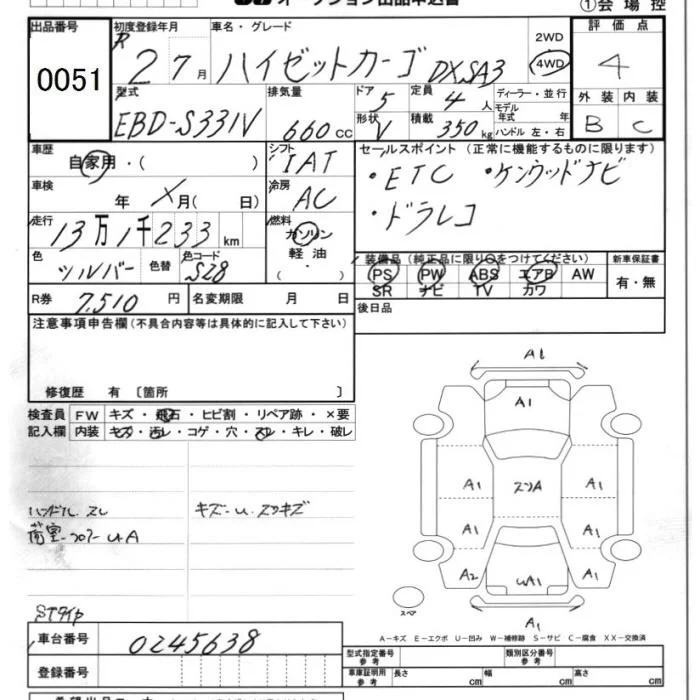 オークション出品申込書
①会場控
出品番号
0051
初度登録年月
R 2 7月
車名・グレード
ハイゼットカーゴ DXSA3
2WD
4WD
評価点
4
型式
EBD-S331V
排気量
660 cc
ドア
5
定員
4人
形状
V
積載
350kg
ディーラー・並行
モデル年式 年
ハンドル 左・右
外装 内装
B C
車歴
自家用・( )
シフト
IAT
セールスポイント(正常に機能するものに限ります)
・ETC ・ケンウッドナビ
・ドラレコ
車検
年 X月( 日)
冷房
AC
走行
13万1千233km
燃料
ガソリン
軽油
色
シルバー
色替
色コード
S28
装備品(純正品に限り○をつけてください)
新車保証書
PS PW ABS エアB AW
SR ナビ TV カワ
有・無
R券
7,510円
名変期限 月 日
後日品
注意事項申告欄(不具合内容等は具体的に記入して下さい)
修復歴 有 〔箇所 〕
検査員
記入欄
FW キズ・飛石・ヒビ割・リペア跡・×要
内装 キズ・汚レ・コゲ・穴・スレ・キレ・破レ
ハンドル スレ
キズ-U. スリキズ
荷室-フロアーUA
STタイヤ
A1
A1
A1
スリA
A1
A1
A1
A2
UA1
A1
A1
スペア
A-キズ E-エクボ U-凹み W-補修跡 S-サビ C-腐食 XX-交換済
車台番号
0245638
登録番号
型式指定番号
参考
類別区分番号
参考
車庫証明用
参考
長さ cm
幅 cm
高さ cm